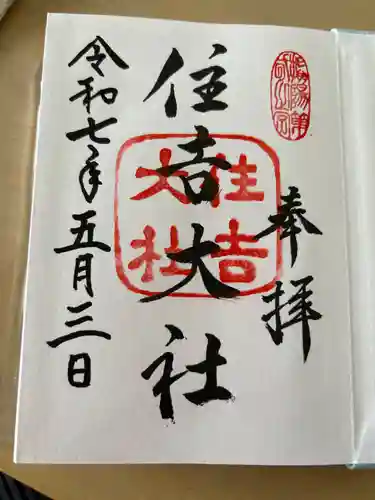 奉拝
住吉大社
令和七年五月三日
住吉
大社